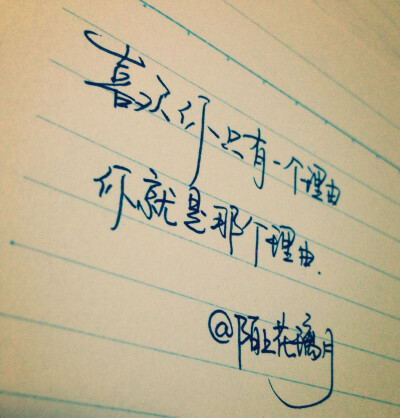 喜欢你只有一个理由
你就是那个理由.
@陌上花璃月